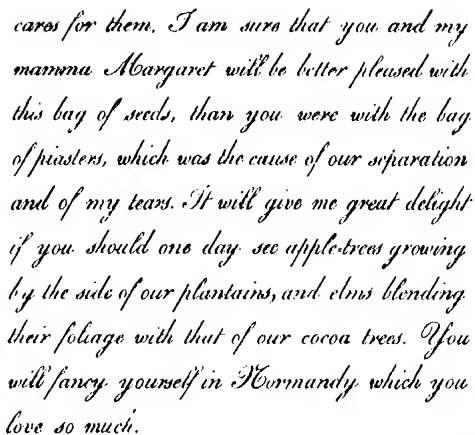 cares for them. I am sure that you and my
mamma Margaret will be better pleased with
this bag of seeds, than you were with the bag
of piasters, which was the cause of our separation
and of my tears. It will give me great delight
if you should one day see apple-trees growing
by the side of our plantains, and elms blending
their foliage with that of our cocoa trees. You
will fancy yourself in Normandy which you
love so much.